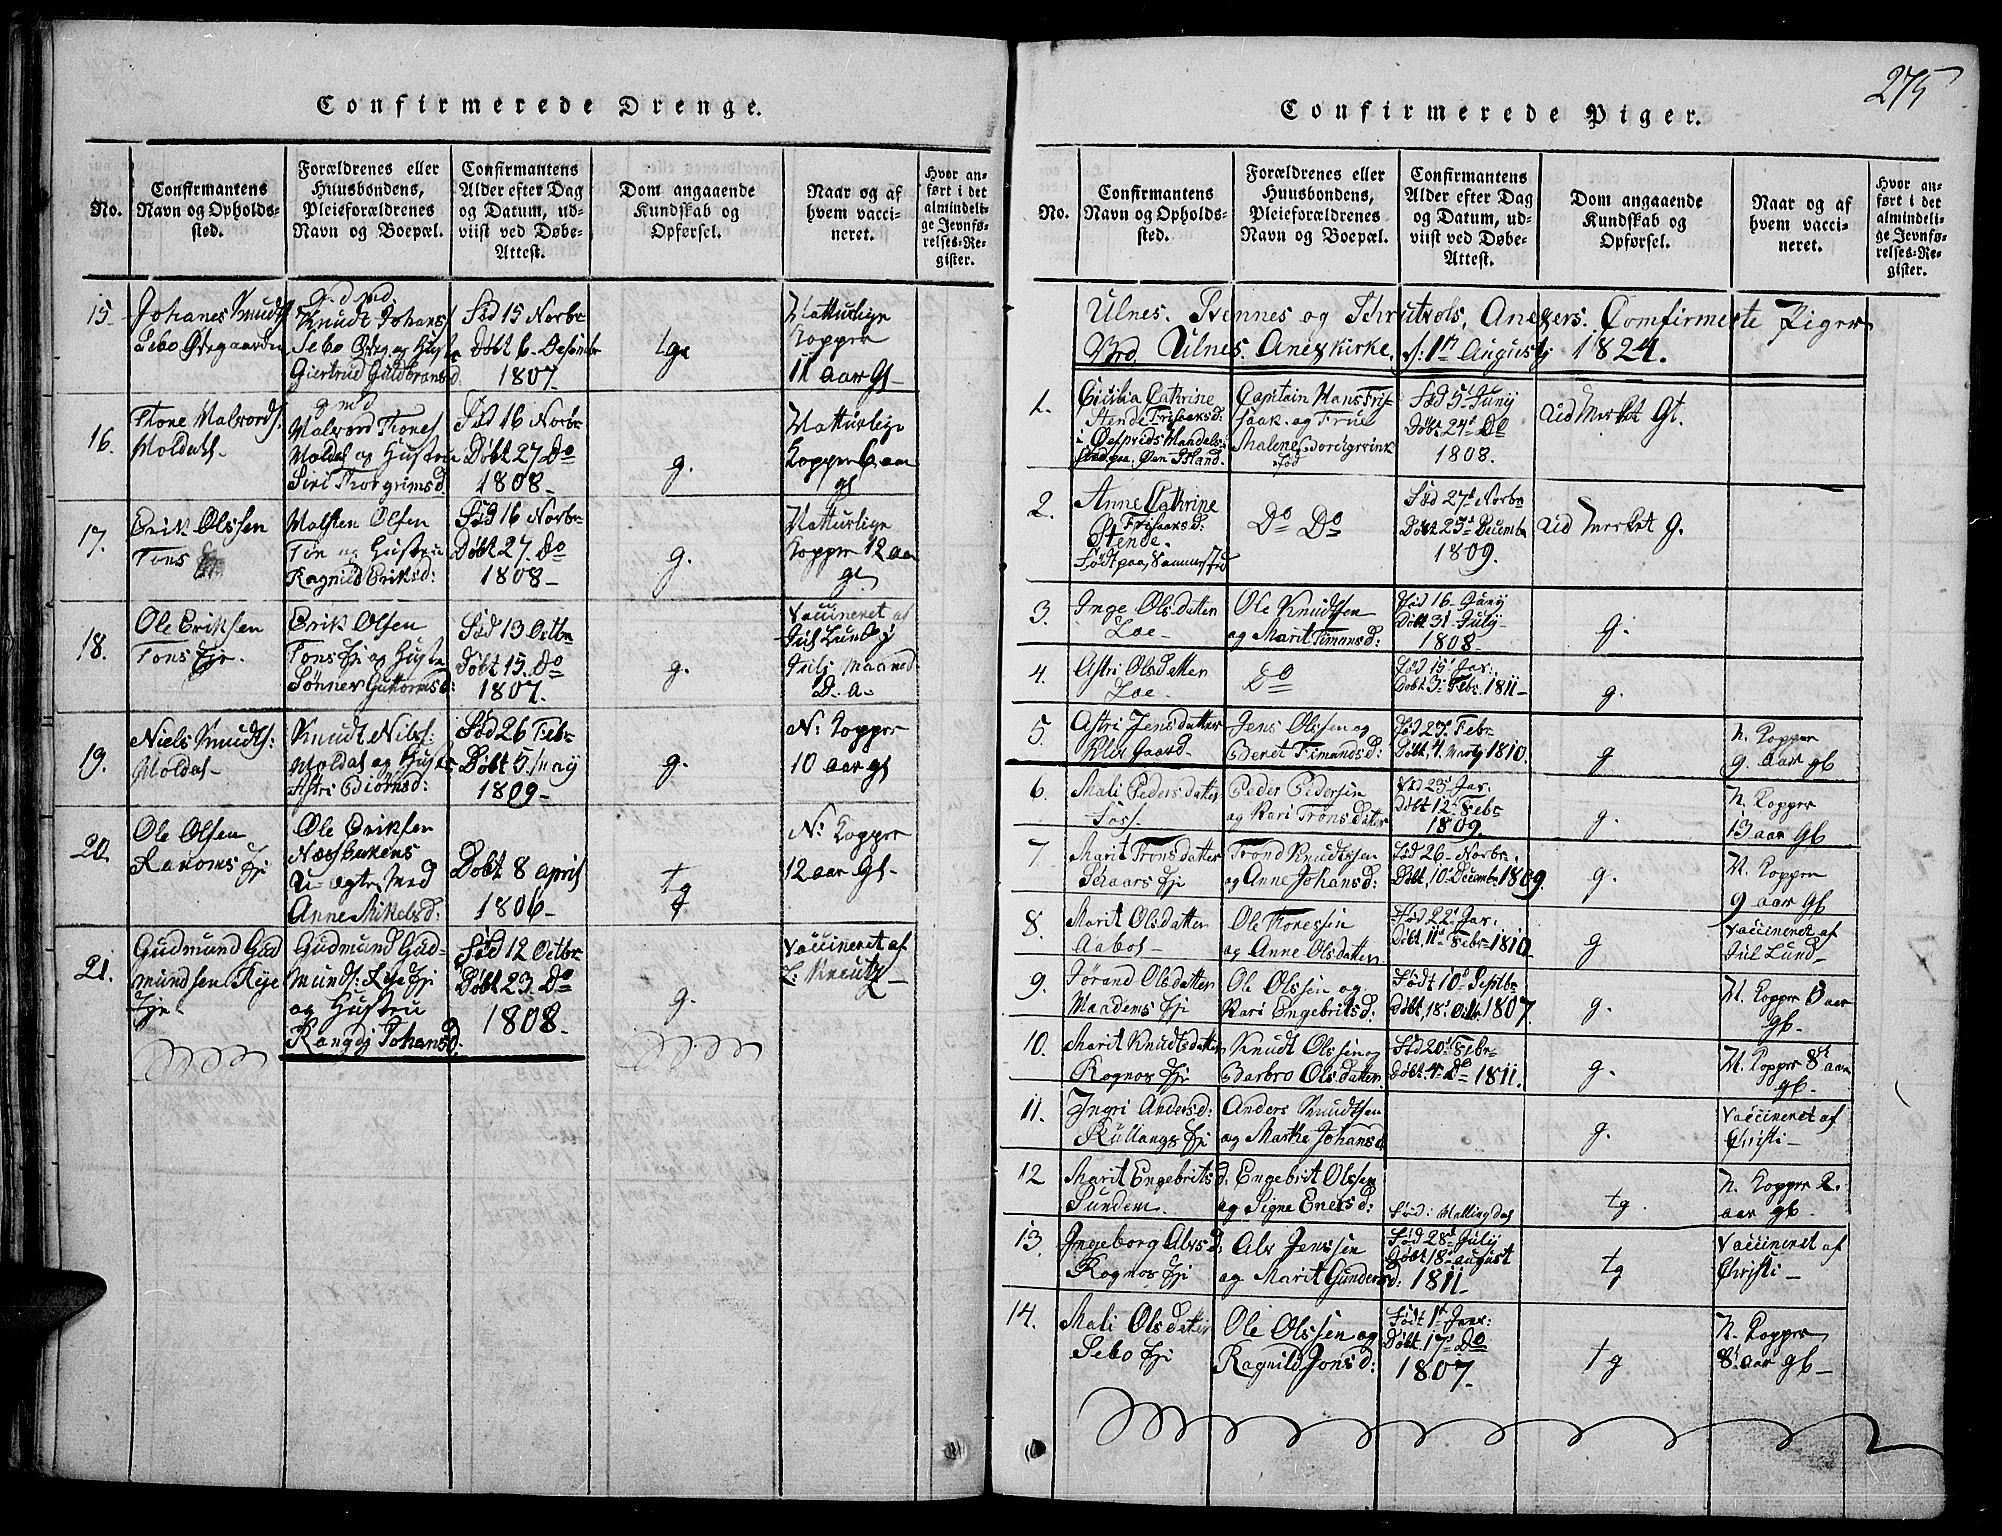 Confirmerede Drenge.
No.
Confirmantens
Navn og Opholds-
sted.
Forældrenes eller
Huusbondens,
Pleieforældrenes
Navn og Boepæl.
Confirmantens
Alder efter Dag
og Datum, ud-
viist ved Døbe-
Attest.
Dom angaaende
Kundskab og
Opførsel.
Naar og af
hvem vacci-
neret.
Hvor an-
ført i det
almindeli-
ge Jevnfø-
relses-Re-
gister.
15
Johanes Knudts
Sebo Ødegaarden
Knudt Johans
Sebo Ødeg. og Hust
Giertrud Guldbransd
Fød 15 Norbr
Døbt 6 Desembr
1807.
tg.
Natturlige
Kopper
11 aar Gl
16.
Thore Halvords.
Moldal
Halvord Thores
Moldal og Hustru
Siri Thorgrimsd.
Fød 16 Norbr
Døbt 27 Do
1808
g.
Natturlige
Kopper 6 aar
gl
17.
Erik Olssen
Tons
Halsten Olsen
og Hustru
Ragnild Eriksd:
Fød 16 Norbr
Døbt 27. Do
1808
g.
Natturlige
Kopper 12 aar
gl
18.
Ole Eriksen
Tons Eje.
Erik Olsen
Tons Eje og Hustr
Sønnev Guttormsd:
Fød 13 Octbr
Døbt 15. Do
1807.
g.
Vaccineret af
Jul Lund
D. A
19.
Niels Knudts:
Moldal
Knudt Nils:
Moldal og Hust
Astri Biørnsd:
Fød 26 Febr
Døbt 5 May
1809
g.
N: Kopper
10 aar gl
20.
Ole Olsen
Ranoms Eje
Ole Eriksen
Næsbakens
U-ægte med
Anne Mikelsd:
Døbt 8 april
1806
tg
N: Kopper
12 aar Gl.
21.
Gudmund Gud
mundsen Rye
Eje
Gudmund Gud-
munds: Rye Eje
og Hustru
Rangdi Johansd:
Fød 12 Octbr
Døbt 23. Do
1808
g.
Vaccineret af
275
Confirmerede Piger.
No.
Confirmantens
Navn og Opholds-
sted.
Forældrenes eller
Huusbondens,
Pleieforældrenes
Navn og Boepæl.
Confirmantens
Alder efter Dag
og Datum, ud-
viist ved Døbe-
Attest.
Dom angaaende
Kundskab og
Opførsel.
Naar og af
hvem vacci-
neret.
Hvor an-
ført i det
almindeli-
ge Jevnfø-
relses-Re-
gister.
Ulnes. Svennes og Schrutvols, Anexers. Comfirmerte Piger
Ved Ulnes Anexkirke, d: 1te Augusty 1824.
1.
Cicilia Cathrine
Stende Frisaksd:
Øen Island.
Captain Hans Fri-
saak og Frue
Malene
Fød
Fød 5 Juny
Døbt 24 Do
1808.
ud Merket Gt.
2.
Anne Cathrine
Frisaksd:
Stende.
Do Do
Fød 27 Norbr
Døbt 23 Decembr
1809.
ud Merket g.
3.
Inge Olsdatter
Loe
Ole Knudtsen
og Marit Timansd:
Fød 16 Juny
Døbt 31 July
1808
g.
4.
Astri Olsdatter
Loe
Do
Fød 15 Jar:
Døbt 3 Febr 1811
g.
5.
Astri Jensdatter
Jens Olssen og
Beret Timansd:
Fød 23 Febr
Døbt 4. Marty 1810.
g
N. Kopper
9. aar gl
6.
Mali Pedersdatter
Foss
Peder Pedersen
og Kari Tronsdatter
Fød 23 Jar.
Døbt 12 Febr
1809.
g.
N. Kopper
13 aar Gl
7
Marit Tronsdatter
Skaars Eje
Trond Knudtssen
og Anne Johansd:
Fød 26 Norbr.
Døbt, 10 Decembr 1809.
g.
N. Kopper
9 aar Gl
8.
Marit Olsdatter
Aabol
Ole Thoressen
og Anne Olsdatter
Fød 22 Jar.
Døbt, 11 Febr 1810
g
Vaccineret af
Jul Lund
9.
Jørand Olsdatter
Maadems Eje
Ole Olssen og
Kari Engebritsd:
Født 10 Septbr
Døbt, 18 Octbr 1807.
g.
N. Kopper 13 aar
gl.
10.
Marit Knudtsdatter
Rognos Eje
Knudt Olssen og
Barbro Olsdatter
Fød 20 Febr
Døbt. 4 Do 1811.
g.
N. Kopper 8 aar
gl.
11.
Ingri Andersd:
Kullangs Eje
Anders Knudtsen
og Marthe Johansd
g.
Vaccineret af
Christi
12
Marit Engebritsd.
Sundem.
Engebrit Olssen
og Signe Enersd:
Fød: Hallingdal
tg.
N. Kopper 2.
aar gl.
13.
Ingeborg Alvsd.
Rognos Eje
Alv Jenssen
og Marit Gundersd:
Fød 28 July
Døbt 18 august
1811
tg
Vaccineret af
Christi
14.
Mali Olsdatter
Sebo Eje
Ole Olssen og
Ragnild Jonsd:
Født 1 Jar:
Døbt 17 Do
1807.
tg
N. Kopper
8. aar gl